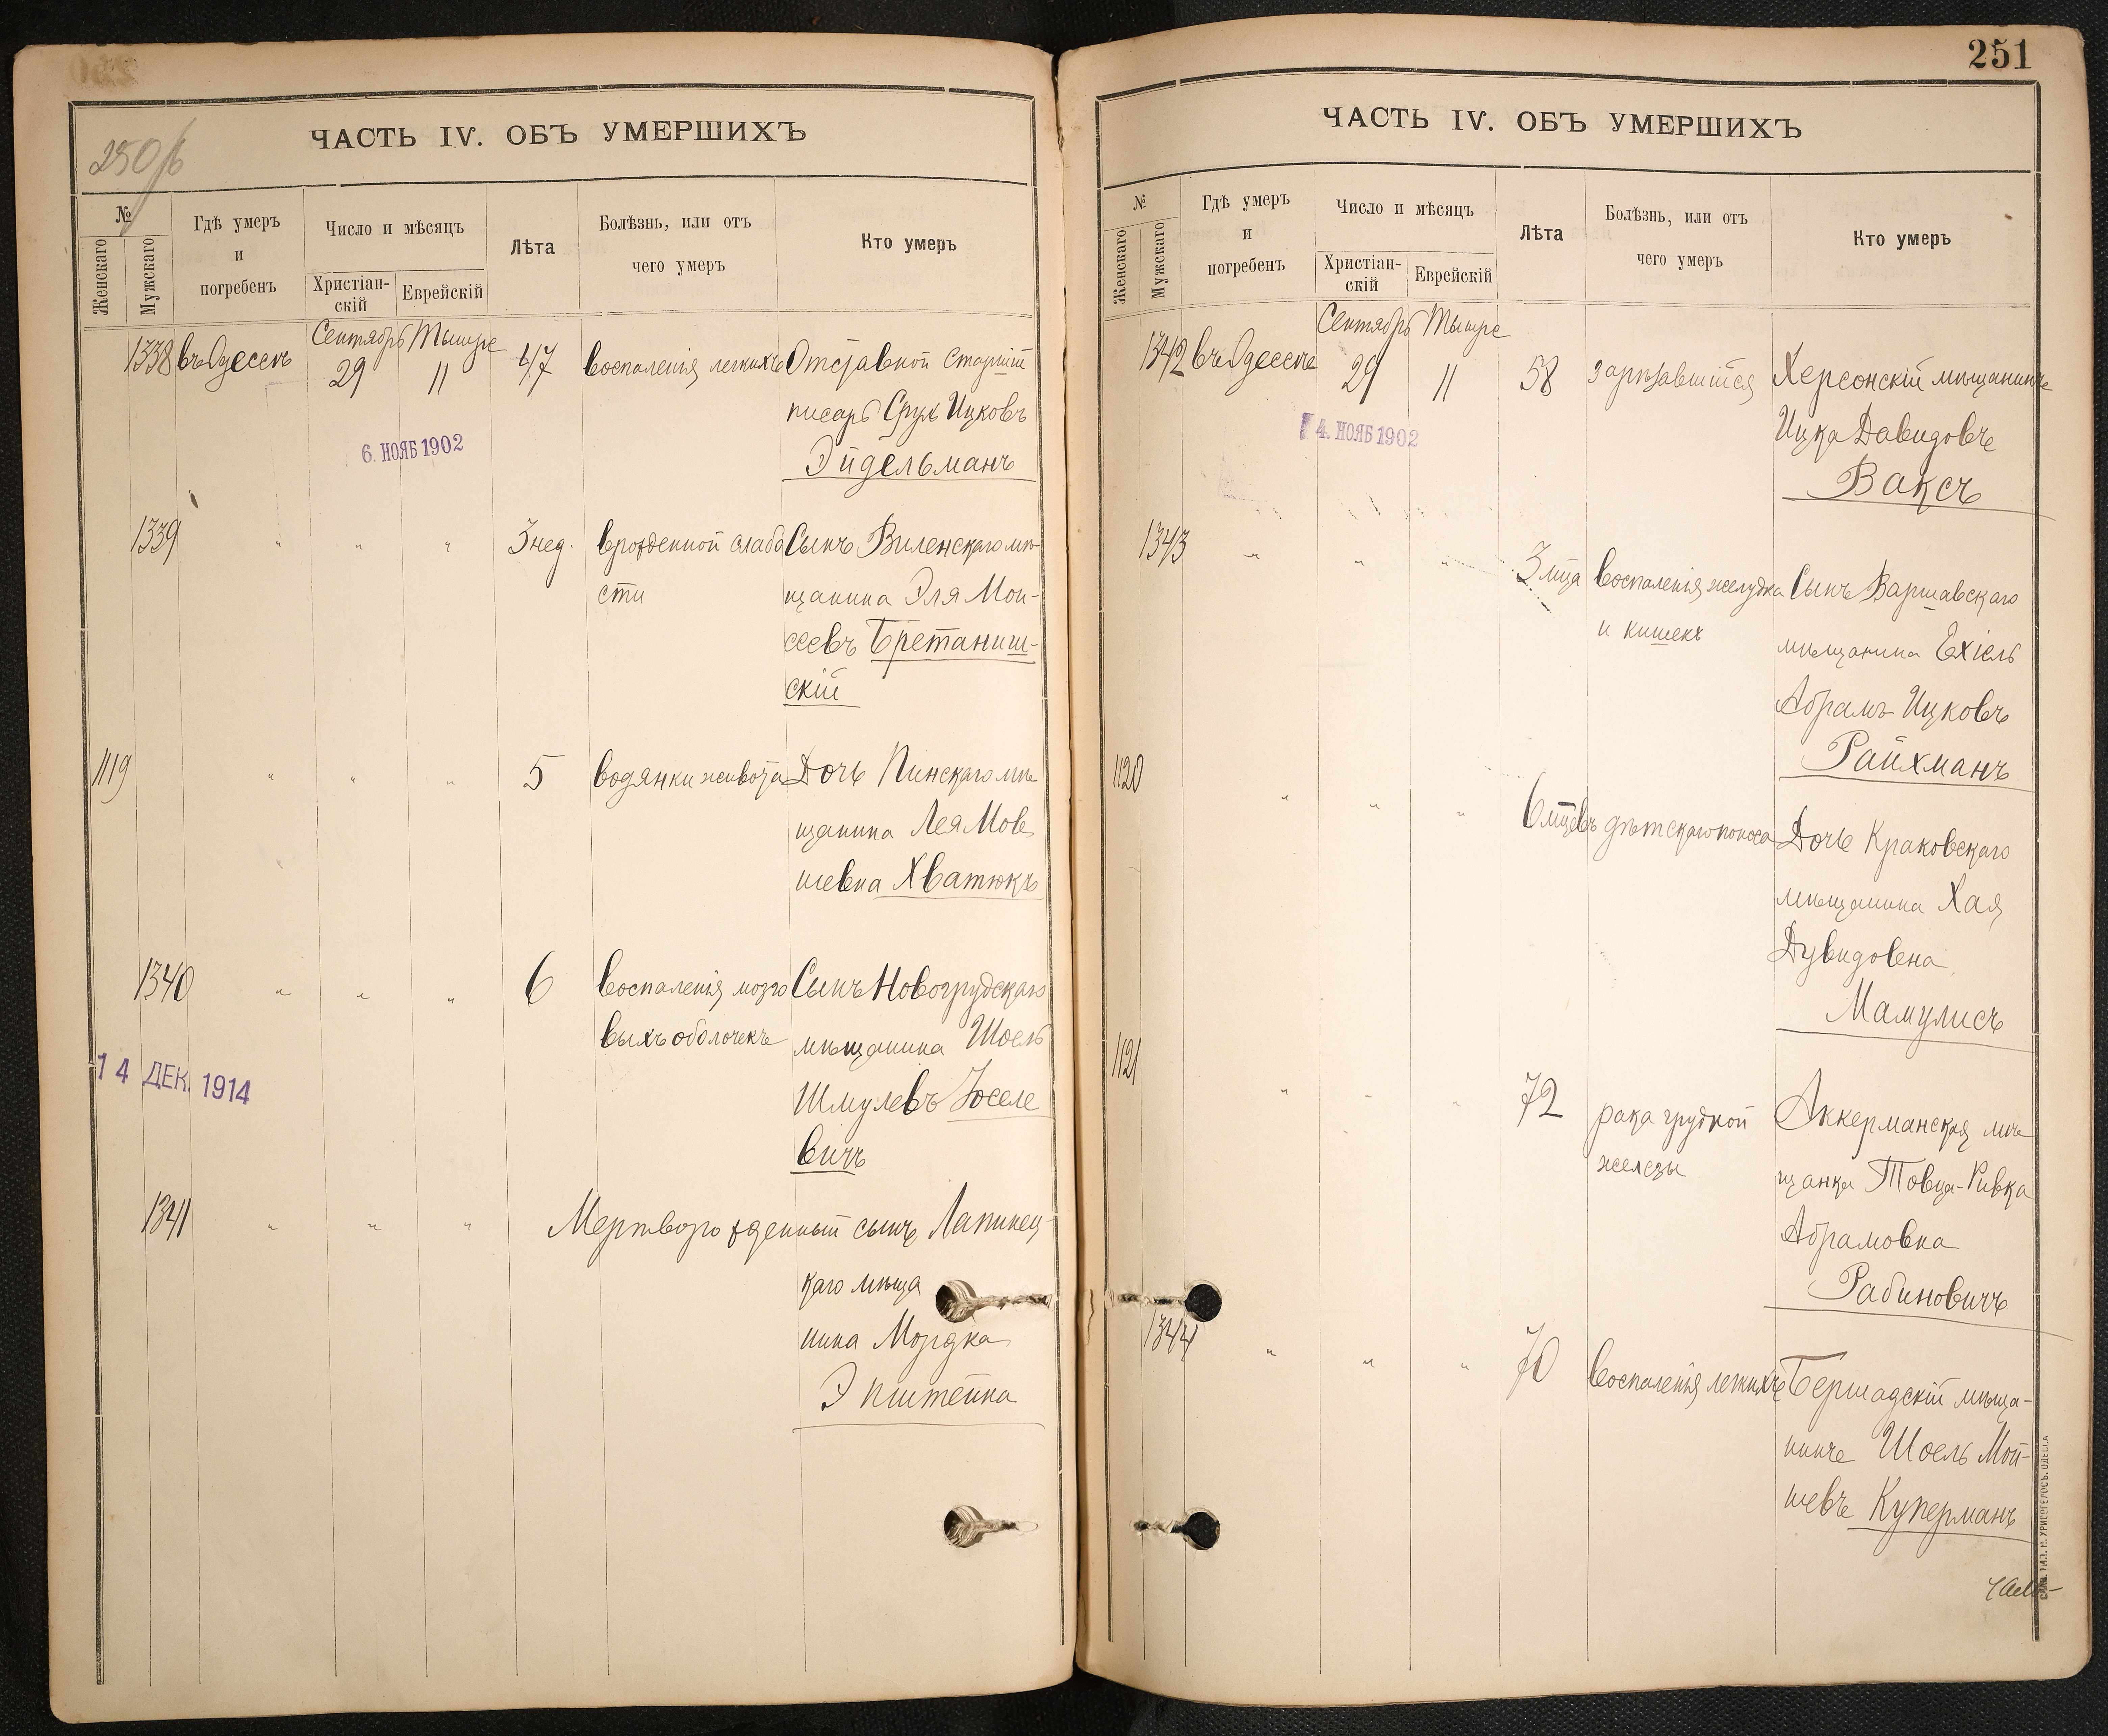 250/б
ЧАСТЬ IV. ОБЪ УМЕРШИХЪ
№
Женскаго
Мужскаго
Гдѣ умеръ
и
погребенъ
Число и мѣсяцъ
Христіан-
скій
Еврейскій
Лѣта
Болѣзнь, или отъ
чего умеръ
Кто умеръ
Сентябрь Тышре
1338 въ Одессѣ 29 11 47 воспаленія легкихъ Отставной Старшій
писарь Срул Ицковъ
6. НОЯБ 1902
Эйдельманъ
1339 " " " 3 нед. врожденной слабо Сынъ Виленскаго мѣ-
сти щанина Эля Мои-
сеевъ Бретаниш-
скій
1119 " " " 5 водянки живота Дочь Пинскаго мѣ
щанина Лея Мов
шевна Хватюкъ
1340 " " " 6 воспаленія мозго Сынъ Новогрудскаго
выхъ оболочекъ мѣщанина Шоель
14 ДЕК. 1914
Шмулевъ Іоселе
вичъ
1341 " " " Мертворожденный сынъ Лапинец-
каго мѣща
нина Мордка
Эпштейна
251
ЧАСТЬ IV. ОБЪ УМЕРШИХЪ
№
Женскаго
Мужскаго
Гдѣ умеръ
и
погребенъ
Число и мѣсяцъ
Христіан-
скій
Еврейскій
Лѣта
Болѣзнь, или отъ
чего умеръ
Кто умеръ
Сентябрь Тышре
1342 въ Одессѣ 29 11 58 зарѣзавшійся Херсонскій мѣщанинъ
4. НОЯБ 1902
Ицка Давидовъ
Ваксъ
1343 " " " 3 мца воспаленія желудка Сынъ Варшавскаго
и кишекъ мѣщанина Ехіель
Абрамъ Ицковъ
Райхманъ
1120 " " " 6 мцевъ дѣтскаго поноса Дочь Краковскаго
мѣщанина Хая
Дувидовна
Мамулисъ
1121 " " " 72 рака грудной Аккерманская мѣ
железы щанка Товца-Ривка
Абрамовна
Рабиновичъ
1344 " " " 70 воспаленія легкихъ Бершадскій мѣща-
нинъ Шоель Мой-
шевъ Куперманъ